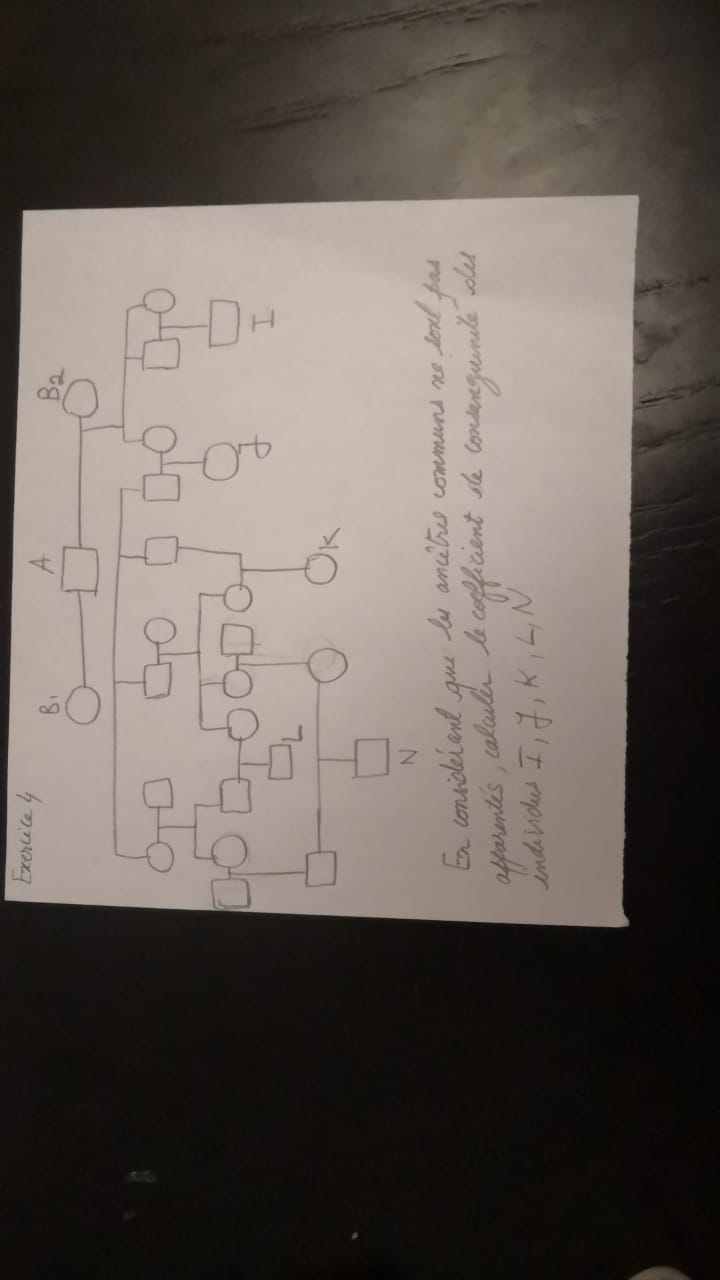 Exercice 4
B1 A B2
J
I
L
K
N
En considérant que les ancêtres communs ne sont pas
apparentés, calculer le coefficient de consanguinité des
individus I, J, K, L, N